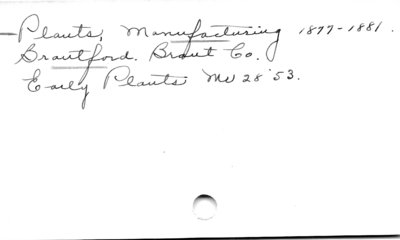 Plants, Manufacturing 1877-1881.
Brantford. Brant Co.
Early Plants Mr 28 '53.